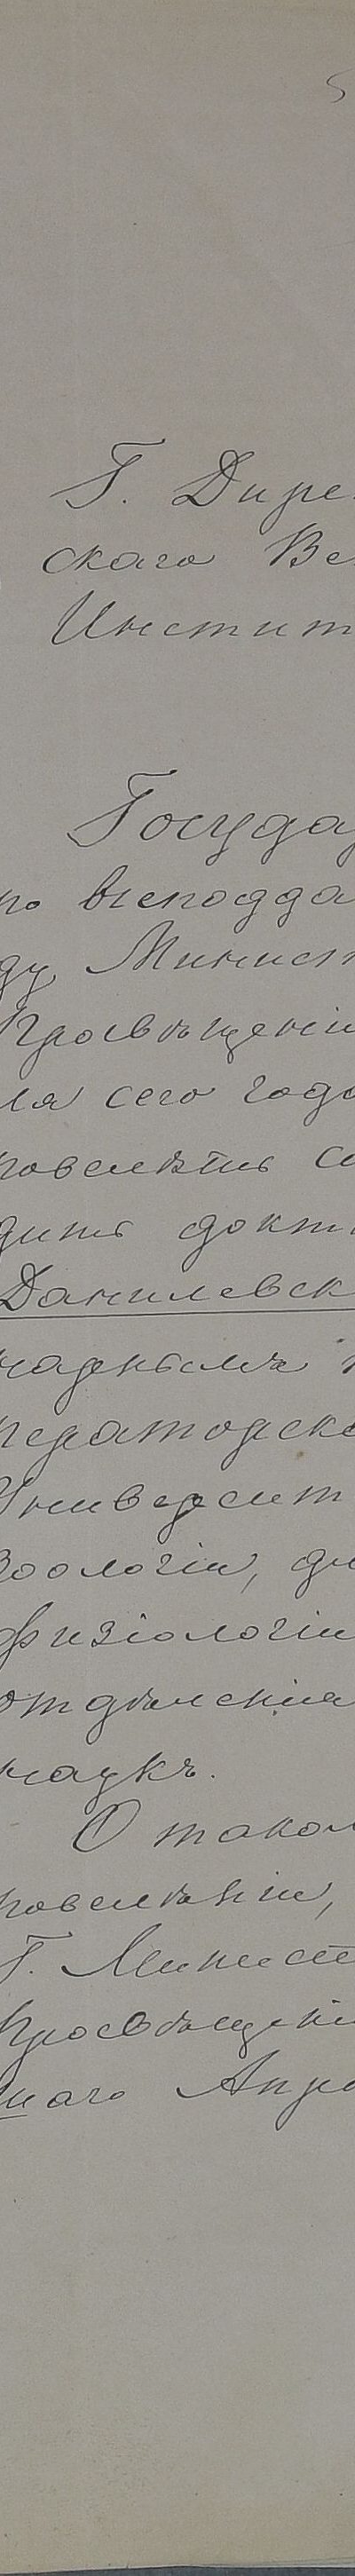 Г. Дире
скаго Ве
Инстит
Госуда
по всеподда
ду Минист
Просвѣщені
ля сего года
повелѣть с
дить докт
Данилевск
наднымъ
ператорск
Университ
Зоологіи, ди
физіологіи
отдѣленія
наукъ.
О таком
повелѣніи,
Г. Минист
Просвѣщені
шаго Апрѣ